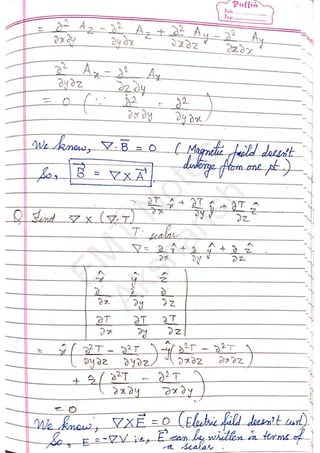 Puffin
Date
Page
= ∂²/∂x∂y Az - ∂²/∂y∂x Az + ∂²/∂x∂z Ay - ∂²/∂z∂x Ay
∂²/∂y∂z Ax - ∂²/∂z∂y Ax
= 0 (∵ ∂²/∂x∂y = ∂²/∂y∂x)
We know, ∇·B⃗ = 0 (Magnetic field doesn't
diverge from one pt.)
So, B⃗ = ∇×A⃗
Q Find ∇×(∇·T) ∂T/∂x x̂ + ∂T/∂y ŷ + ∂T/∂z ẑ
T: scalar
∇ = ∂/∂x x̂ + ∂/∂y ŷ + ∂/∂z ẑ
x̂ ŷ ẑ
∂/∂x ∂/∂y ∂/∂z
∂T/∂x ∂T/∂y ∂T/∂z
= x̂(∂²T/∂y∂z - ∂²T/∂y∂z) - ŷ(∂²T/∂x∂z - ∂²T/∂x∂z)
+ ẑ(∂²T/∂x∂y - ∂²T/∂x∂y)
= 0
We know, ∇×E⃗ = 0 (Electric field doesn't curl)
So, E = -∇V i.e, E⃗ can be written in terms of
a scalar.